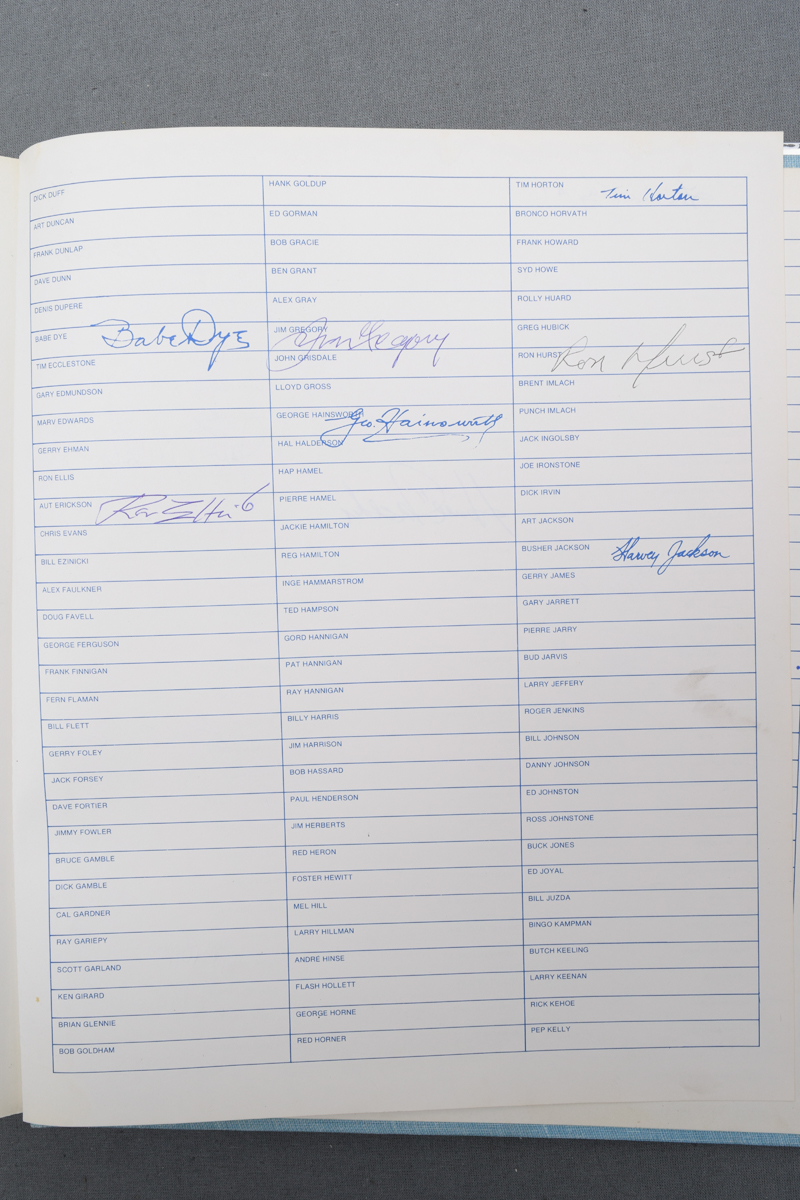 DICK DUFF
ART DUNCAN
FRANK DUNLAP
DAVE DUNN
DENIS DUPERE
BABE DYE
Babe Dye
TIM ECCLESTONE
GARY EDMUNDSON
MARV EDWARDS
GERRY EHMAN
RON ELLIS
AUT ERICKSON
Ron Ellis 6
CHRIS EVANS
BILL EZINICKI
ALEX FAULKNER
DOUG FAVELL
GEORGE FERGUSON
FRANK FINNIGAN
FERN FLAMAN
BILL FLETT
GERRY FOLEY
JACK FORSEY
DAVE FORTIER
JIMMY FOWLER
BRUCE GAMBLE
DICK GAMBLE
CAL GARDNER
RAY GARIEPY
SCOTT GARLAND
KEN GIRARD
BRIAN GLENNIE
BOB GOLDHAM
HANK GOLDUP
ED GORMAN
BOB GRACIE
BEN GRANT
ALEX GRAY
JIM GREGORY
Jim Gregory
JOHN GRISDALE
LLOYD GROSS
GEORGE HAINSWORTH
Geo. Hainsworth
HAL HALDERSON
HAP HAMEL
PIERRE HAMEL
JACKIE HAMILTON
REG HAMILTON
INGE HAMMARSTROM
TED HAMPSON
GORD HANNIGAN
PAT HANNIGAN
RAY HANNIGAN
BILLY HARRIS
JIM HARRISON
BOB HASSARD
PAUL HENDERSON
JIM HERBERTS
RED HERON
FOSTER HEWITT
MEL HILL
LARRY HILLMAN
ANDRE HINSE
FLASH HOLLETT
GEORGE HORNE
RED HORNER
TIM HORTON
Tim Horton
BRONCO HORVATH
FRANK HOWARD
SYD HOWE
ROLLY HUARD
GREG HUBICK
RON HURST
Ron Hurst
BRENT IMLACH
PUNCH IMLACH
JACK INGOLSBY
JOE IRONSTONE
DICK IRVIN
ART JACKSON
BUSHER JACKSON
Harvey Jackson
GERRY JAMES
GARY JARRETT
PIERRE JARRY
BUD JARVIS
LARRY JEFFERY
ROGER JENKINS
BILL JOHNSON
DANNY JOHNSON
ED JOHNSTON
ROSS JOHNSTONE
BUCK JONES
ED JOYAL
BILL JUZDA
BINGO KAMPMAN
BUTCH KEELING
LARRY KEENAN
RICK KEHOE
PEP KELLY